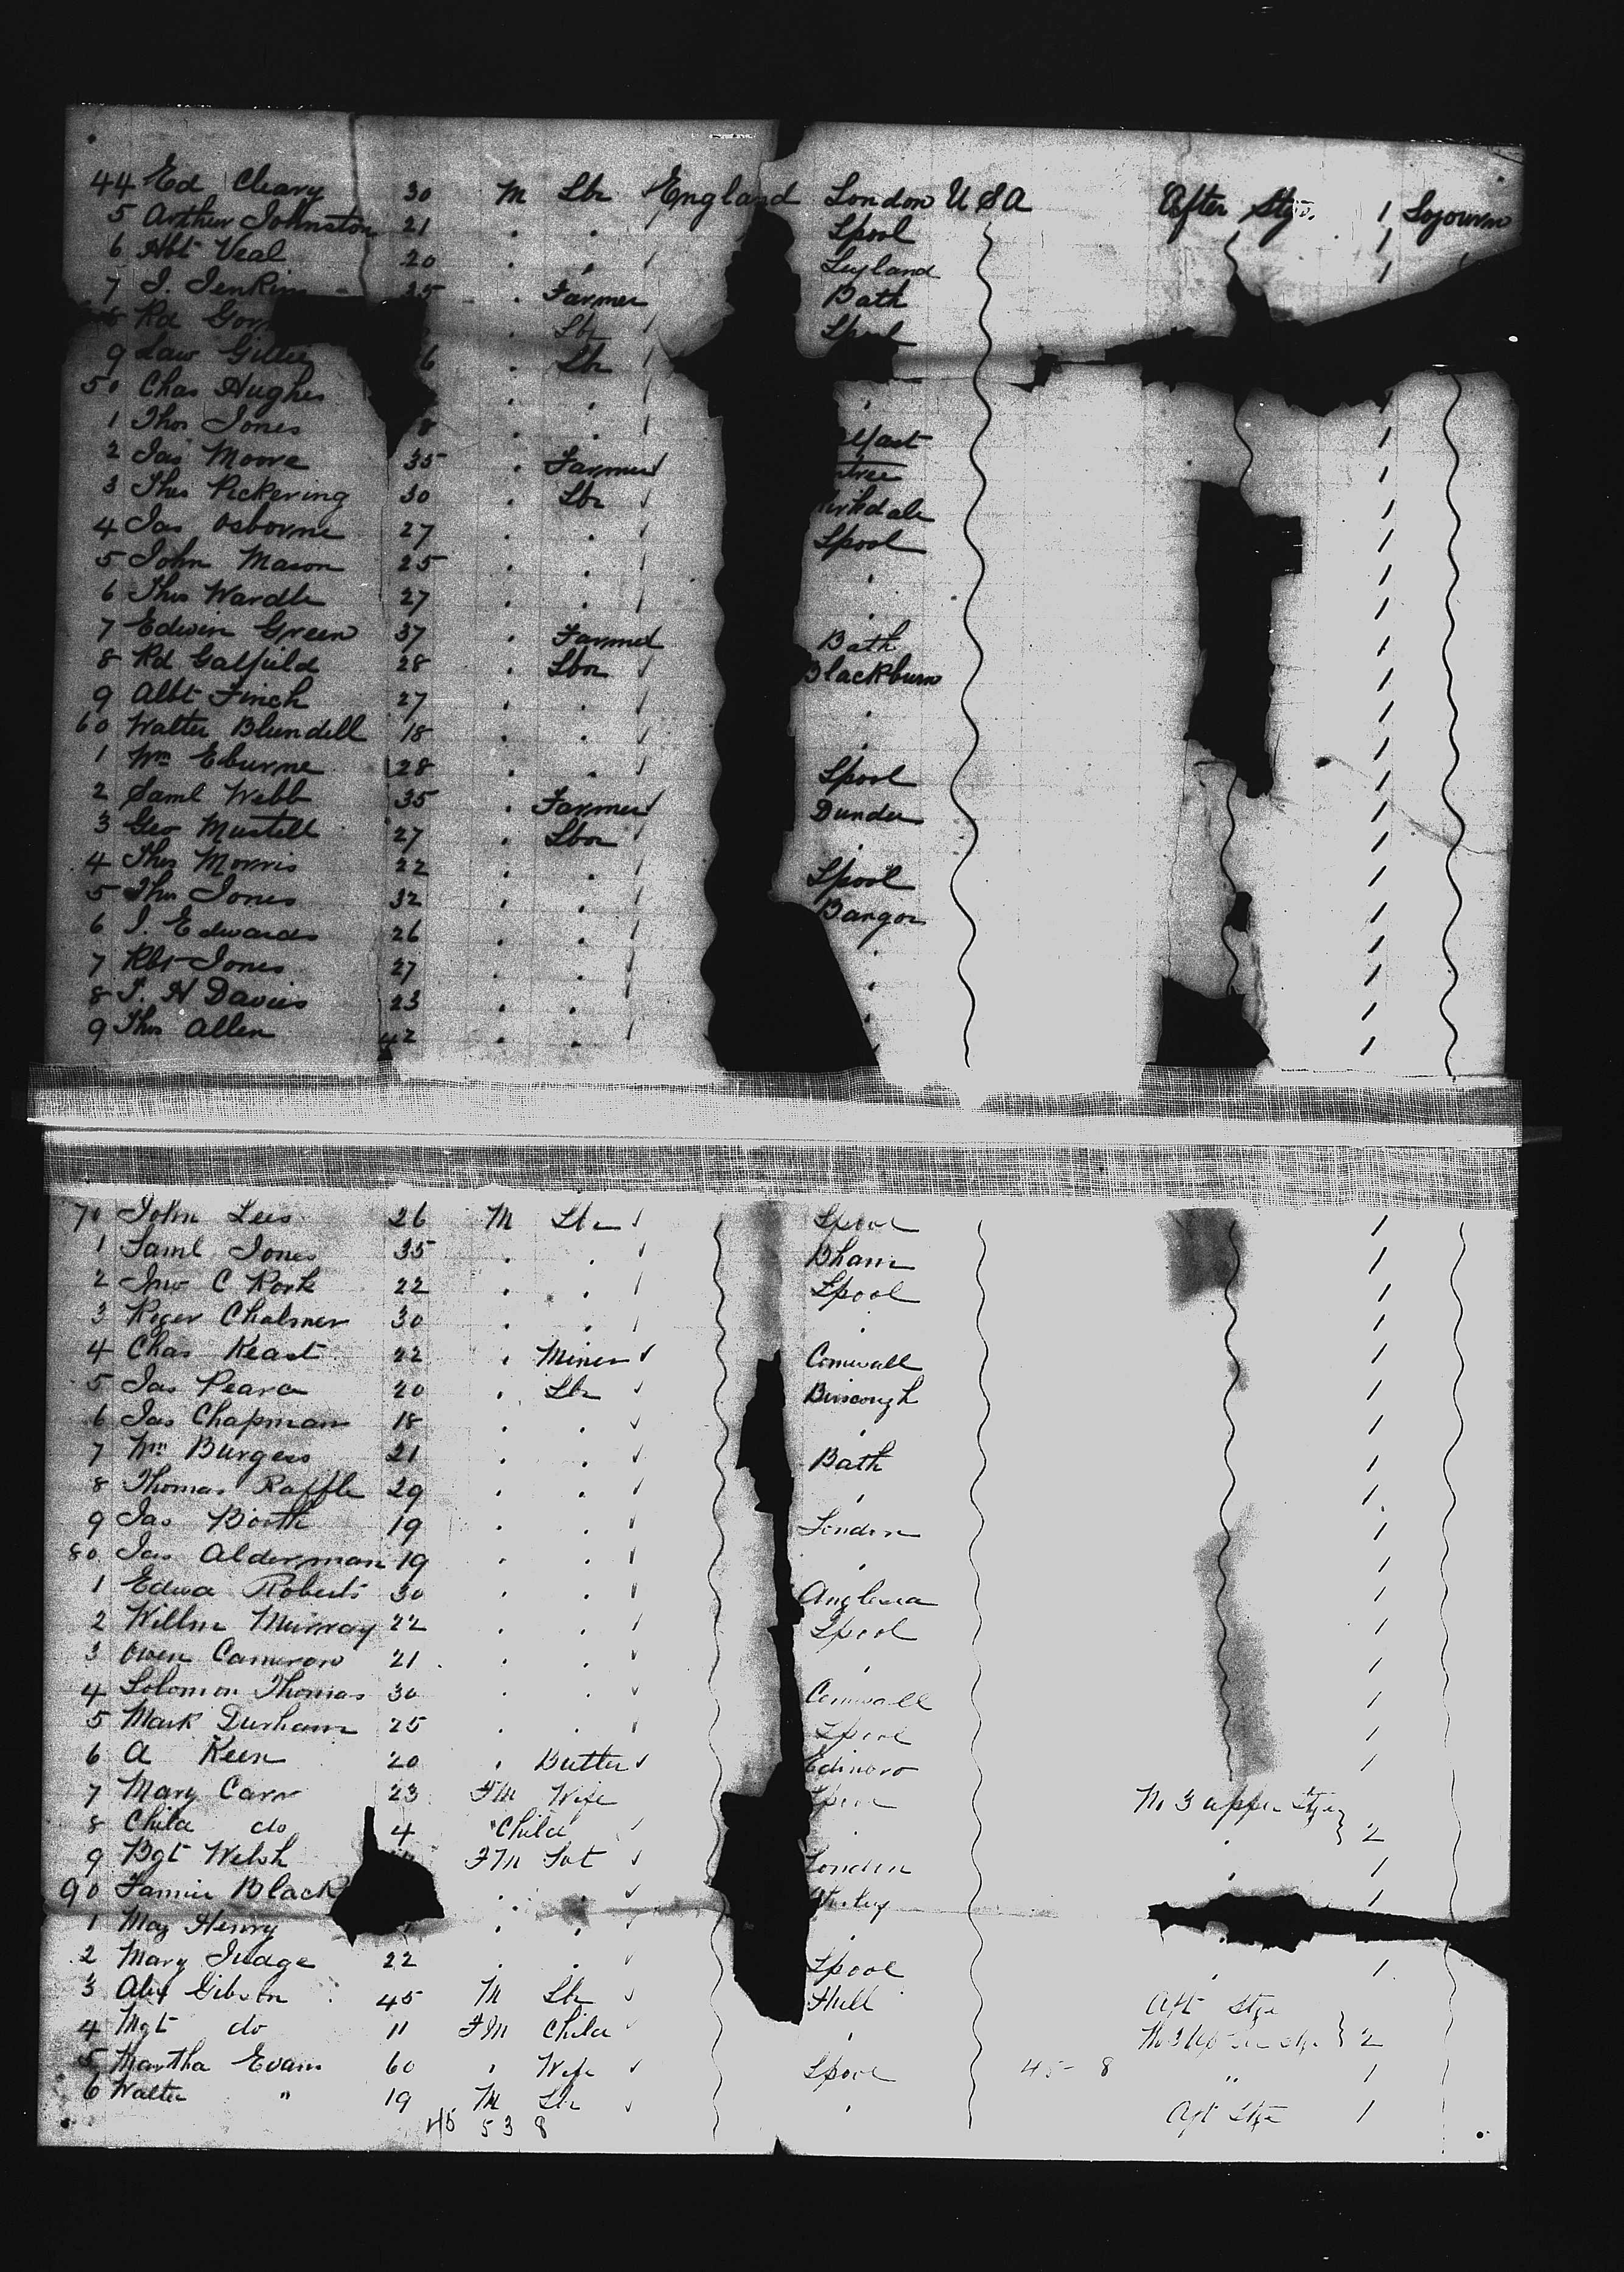 44 Ed Cleary 30 M Lbr England London USA After Stge. 1 Sojourn
5 Arthur Johnston 21 . . Lpool 1
6 Abt Veal 20 . . Leyland 1
7 J. Jenkins 25 . Farmer Bath
8 Rd . Lbr Lpool
9 Law Gillie 6 . Lbr
50 Chas Hughes . . .
1 Thos Jones 8 . . elfast 1
2 Jas Moore 35 . Farmer tree 1
3 Thos Pickering 30 . Lbr irkdale 1
4 Jas Osborne 27 . . Lpool 1
5 John Mason 25 . . . 1
6 Thos Wardle 27 . . . 1
7 Edwin Green 37 . Farmer Bath 1
8 Rd Gatfield 28 . Lbor Blackburn 1
9 Albt Finch 27 . . . 1
60 Walter Blundell 18 . . . 1
1 Wm Eburne 28 . . Lpool 1
2 Saml Webb 35 . Farmer Dundee 1
3 Geo Mustell 27 . Lbor . 1
4 Thos Morris 22 . . Lpool 1
5 Thos Jones 32 . . Bangor 1
6 J. Edwards 26 . . . 1
7 Rbt Jones 27 . . . 1
8 J. H Davies 23 . . . 1
9 Thos Allen 42 . . 1
70 John Lees 26 M Lbr Lpool 1
1 Saml Jones 35 . . Bham 1
2 Jno C Rork 22 . . Lpool 1
3 Roger Chalmer 30 . . . 1
4 Chas Keast 22 . Miner Cornwall 1
5 Jas Pearce 20 . Lbr Burscough 1
6 Jas Chapman 18 . . . 1
7 Wm Burgess 21 . . Bath 1
8 Thomas Raffle 29 . . . 1
9 Jas Booth 19 . . London 1
80 Jas Alderman 19 . . . 1
1 Edwd Roberts 30 . . Anglesea 1
2 Willm Murray 22 . . Lpool 1
3 Owen Cameron 21 . . . 1
4 Solomon Thomas 30 . . Cornwall 1
5 Mark Durham 25 . . Lpool 1
6 A Keen 20 . Butler Edinboro 1
7 Mary Carr 23 FM Wife Lpool No 3 upper Stge
8 Child do 4 " Child . . 2
9 Bgt Welsh FM Svt London . 1
90 Fannie Black . . 1
1 Mag Henry . . .
2 Mary Judge 22 . . Lpool . 1
3 Alex Gibson 45 M Lbr Hull Aft Stge
4 Mgt do 11 FM Child . 2
5 Martha Evans 60 . Wife Lpool 45 - 8 " 1
6 Walter " 19 M Lbr . Aft Stge 1
45 53 8